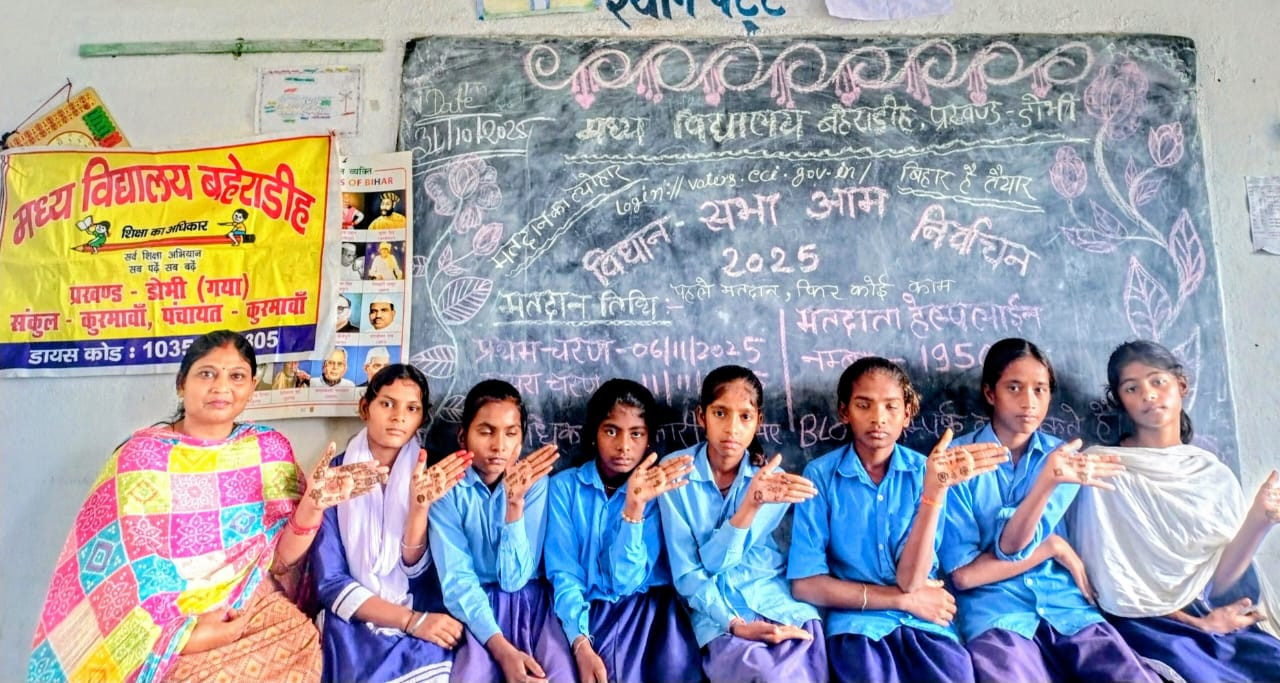 मध्य विद्यालय बहेराडीह
शिक्षा का अधिकार
सर्व शिक्षा अभियान
सब पढ़ें सब बढ़ें
प्रखण्ड - डोभी (गया)
संकुल - कुरमावाँ, पंचायत - कुरमावाँ
डायस कोड : 1035
305
S OF BIHAR
Date
31/10/2025
मध्य विद्यालय बहेराडीह, प्रखण्ड - डोभी
मतदान का त्योहार
login://voters.eci.gov.in/
बिहार है तैयार
विधान - सभा आम निर्वाचन
2025
पहले मतदान, फिर कोई काम
मतदान तिथि :-
प्रथम-चरण - 06/11/2025
चरण
मतदाता हेल्पलाईन
नम्बर - 1950